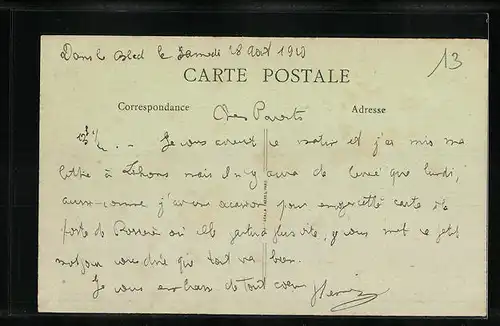 Dans le bled le Samedi 28 Août 1920
13
CARTE POSTALE
Correspondance
Adresse
Chers Parents
Je vous ce matin et j'ai mis ma
lettre à mais il n'y aura de levée que lundi,
aussi comme j'ai une occasion pour cette carte à la
poste de où elle partira plus vite, je vous mets ce petit
mot pour vous dire que tout va bien.
Je vous embrasse de tout coeur